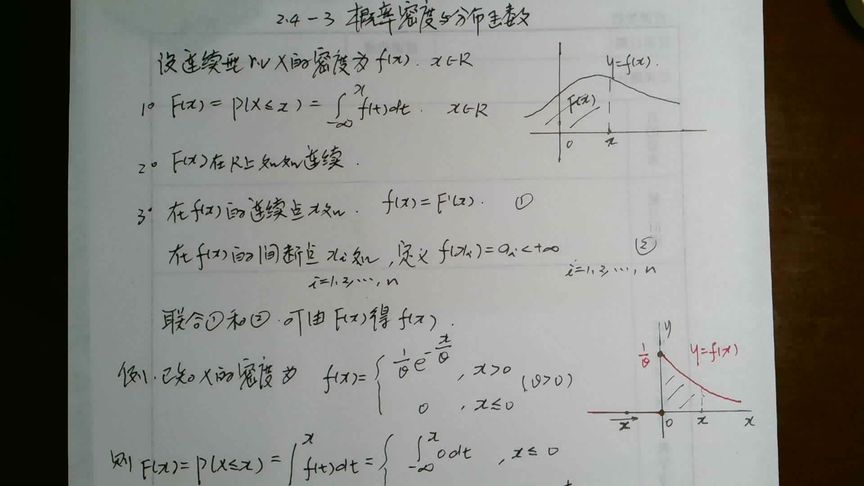 2.4-3 概率密度与分布函数
设连续型 r.v X的密度为 f(x). x∈R
y=f(x).
F(x)
0 x
1° F(x) = P(X≤x) = ∫_{-∞}^{x} f(t)dt. x∈R
2° F(x)在R上处处连续.
3° 在f(x)的连续点x处. f(x)=F'(x). ①
在f(x)的间断点 xi处, 定义 f(xi)=ai<+∞ ②
i=1,2,…,n i=1,2,…,n
联合①和②.可由F(x)得f(x).
例1.已知X的密度为 f(x)= { 1/θ e^{-x/θ}, x>0
0, x≤0 (θ>0)
y
1/θ y=f(x)
x 0 x x
则 F(x)=P(X≤x)= ∫^{x} f(t)dt = { ∫_{-∞}^{x} 0dt, x≤0